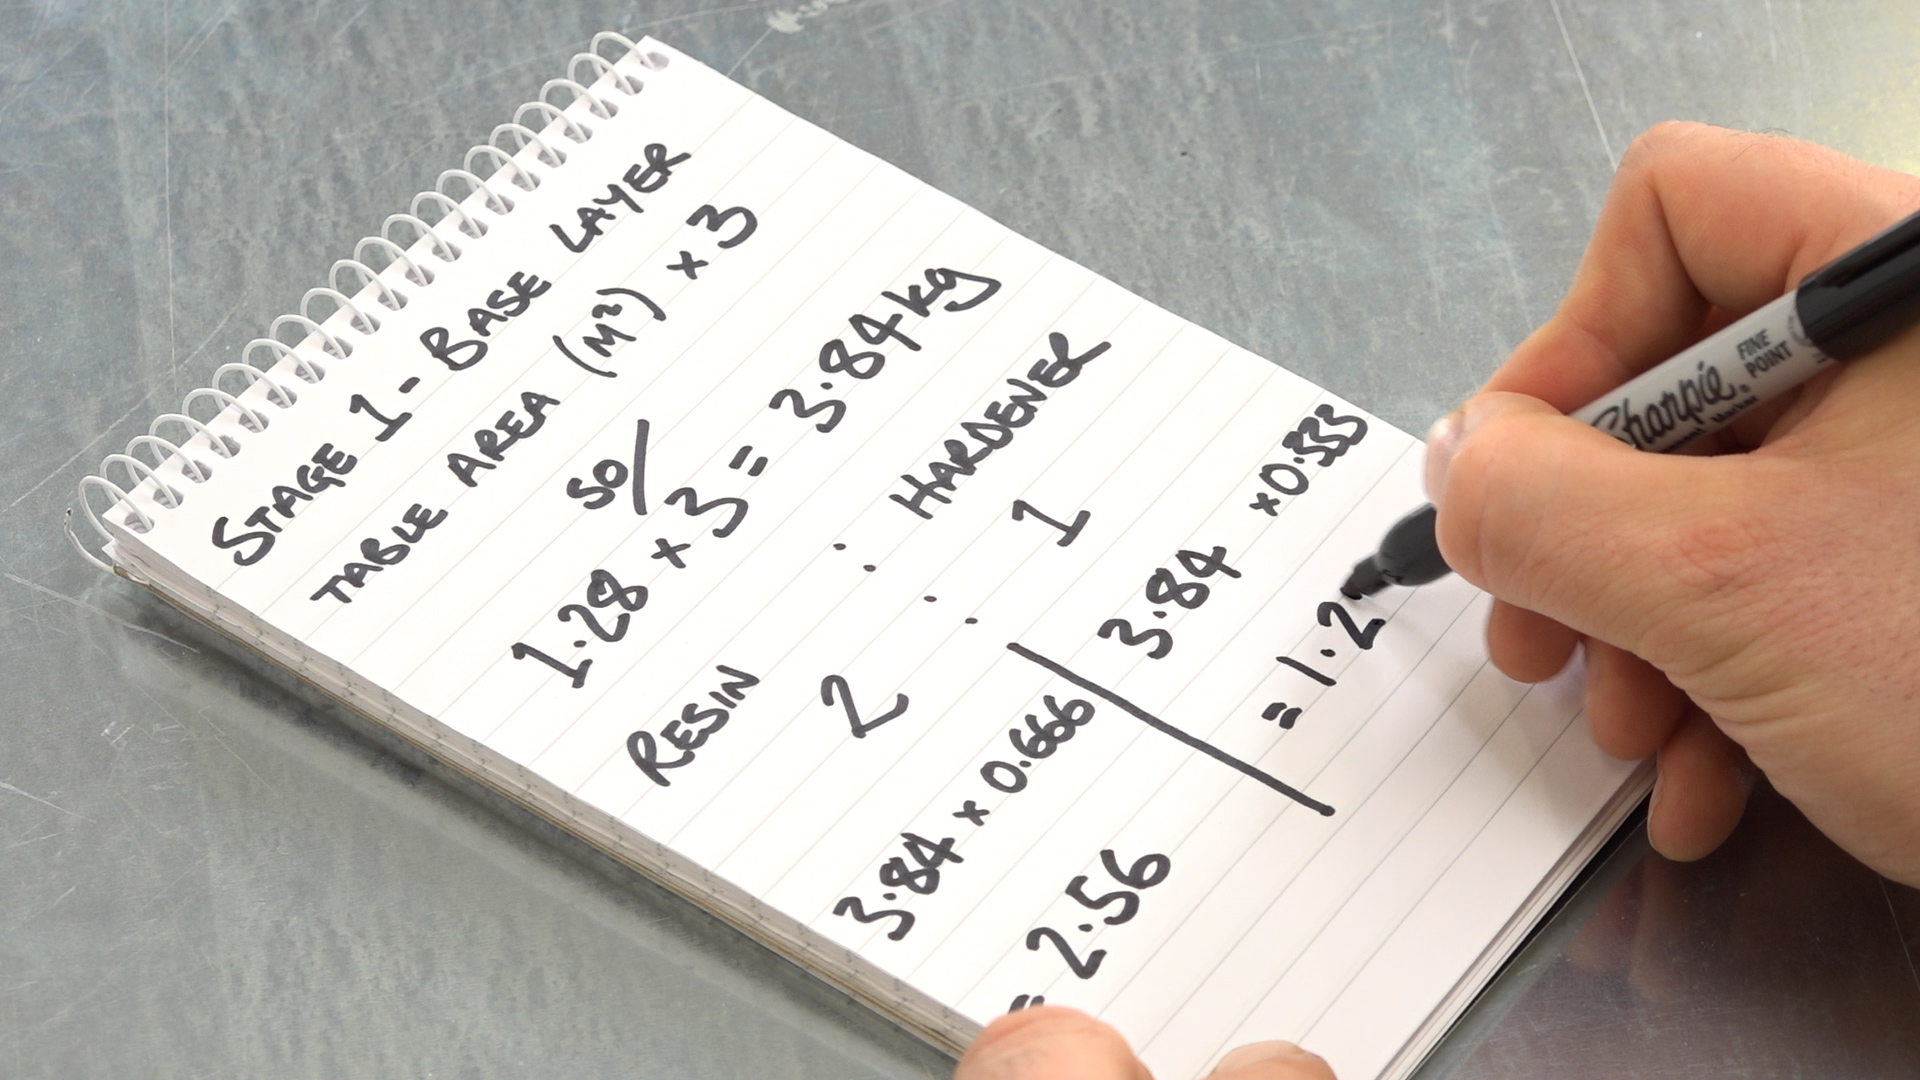 STAGE 1 - BASE LAYER
TABLE AREA (M²) × 3
SO/
1.28 × 3 = 3.84kg
RESIN : HARDENER
2 : 1
3.84 × 0.666
= 2.56
3.84 × 0.333
= 1.2
Sharpie®
FINE
POINT
Marker